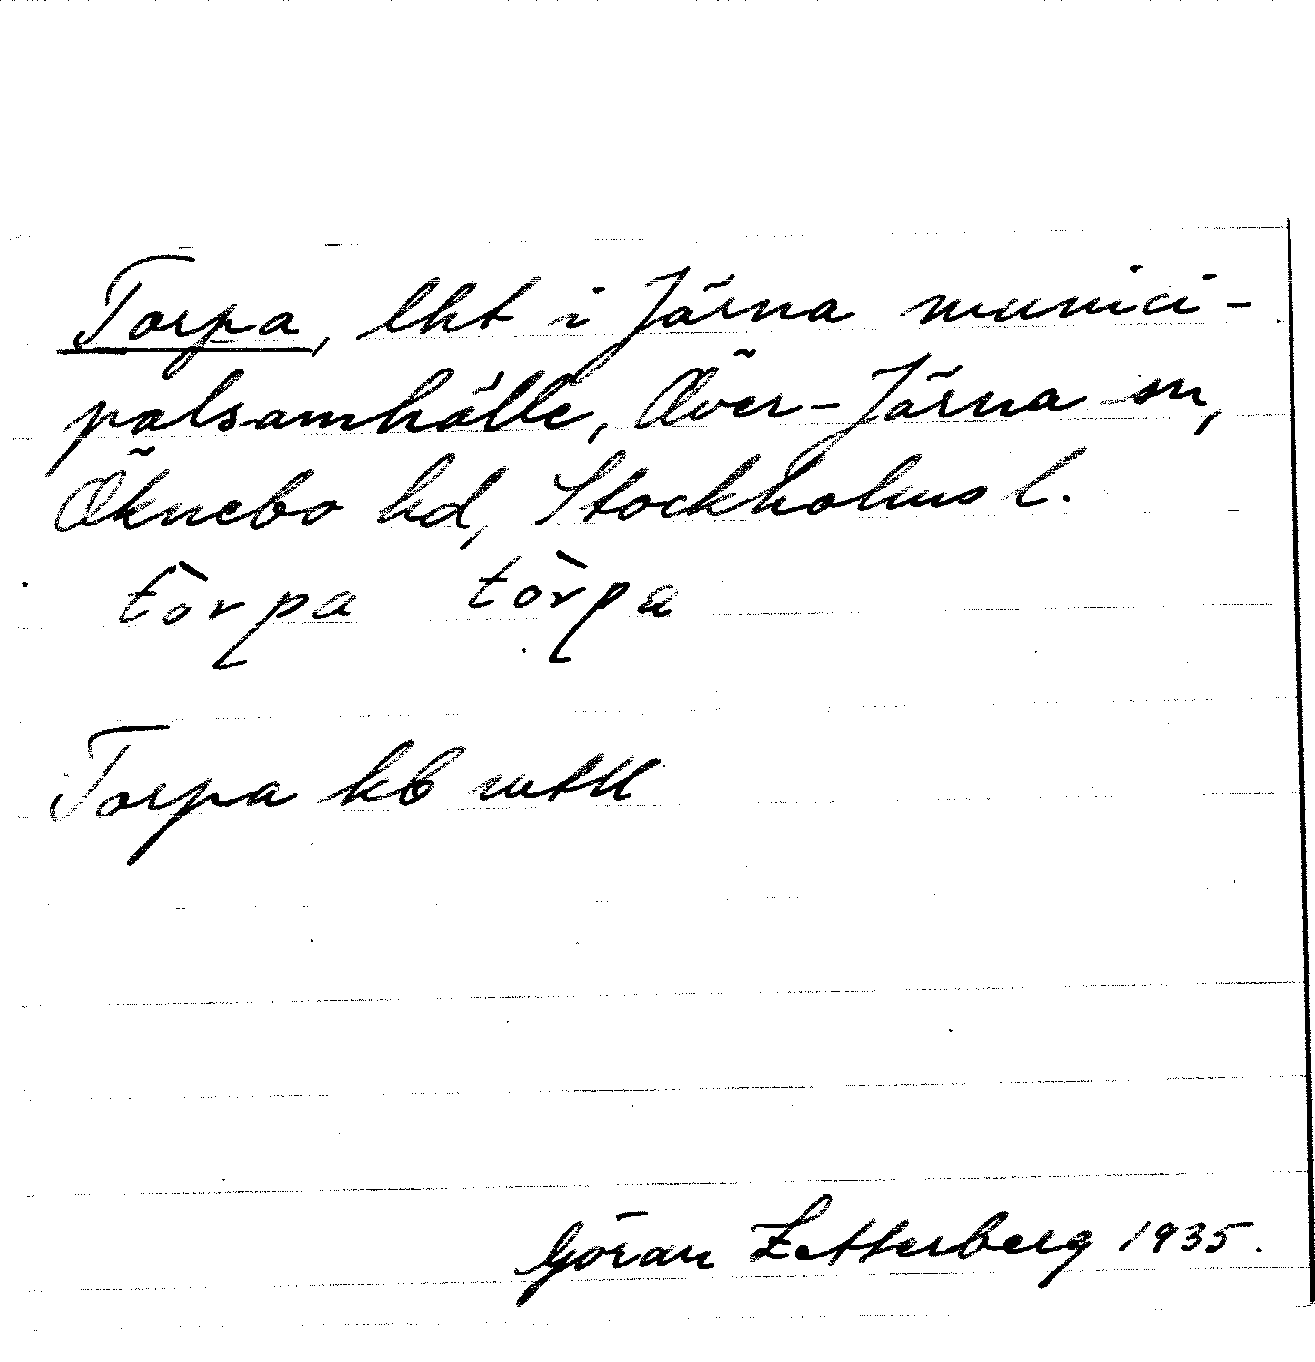 Torpa, lht i Järna munici-
palsamhälle, Över-Järna sn,
Öknebo hd, Stockholms l.
tòrpa tòrpa
Torpa kb mtll
Göran Zetterberg 1935.